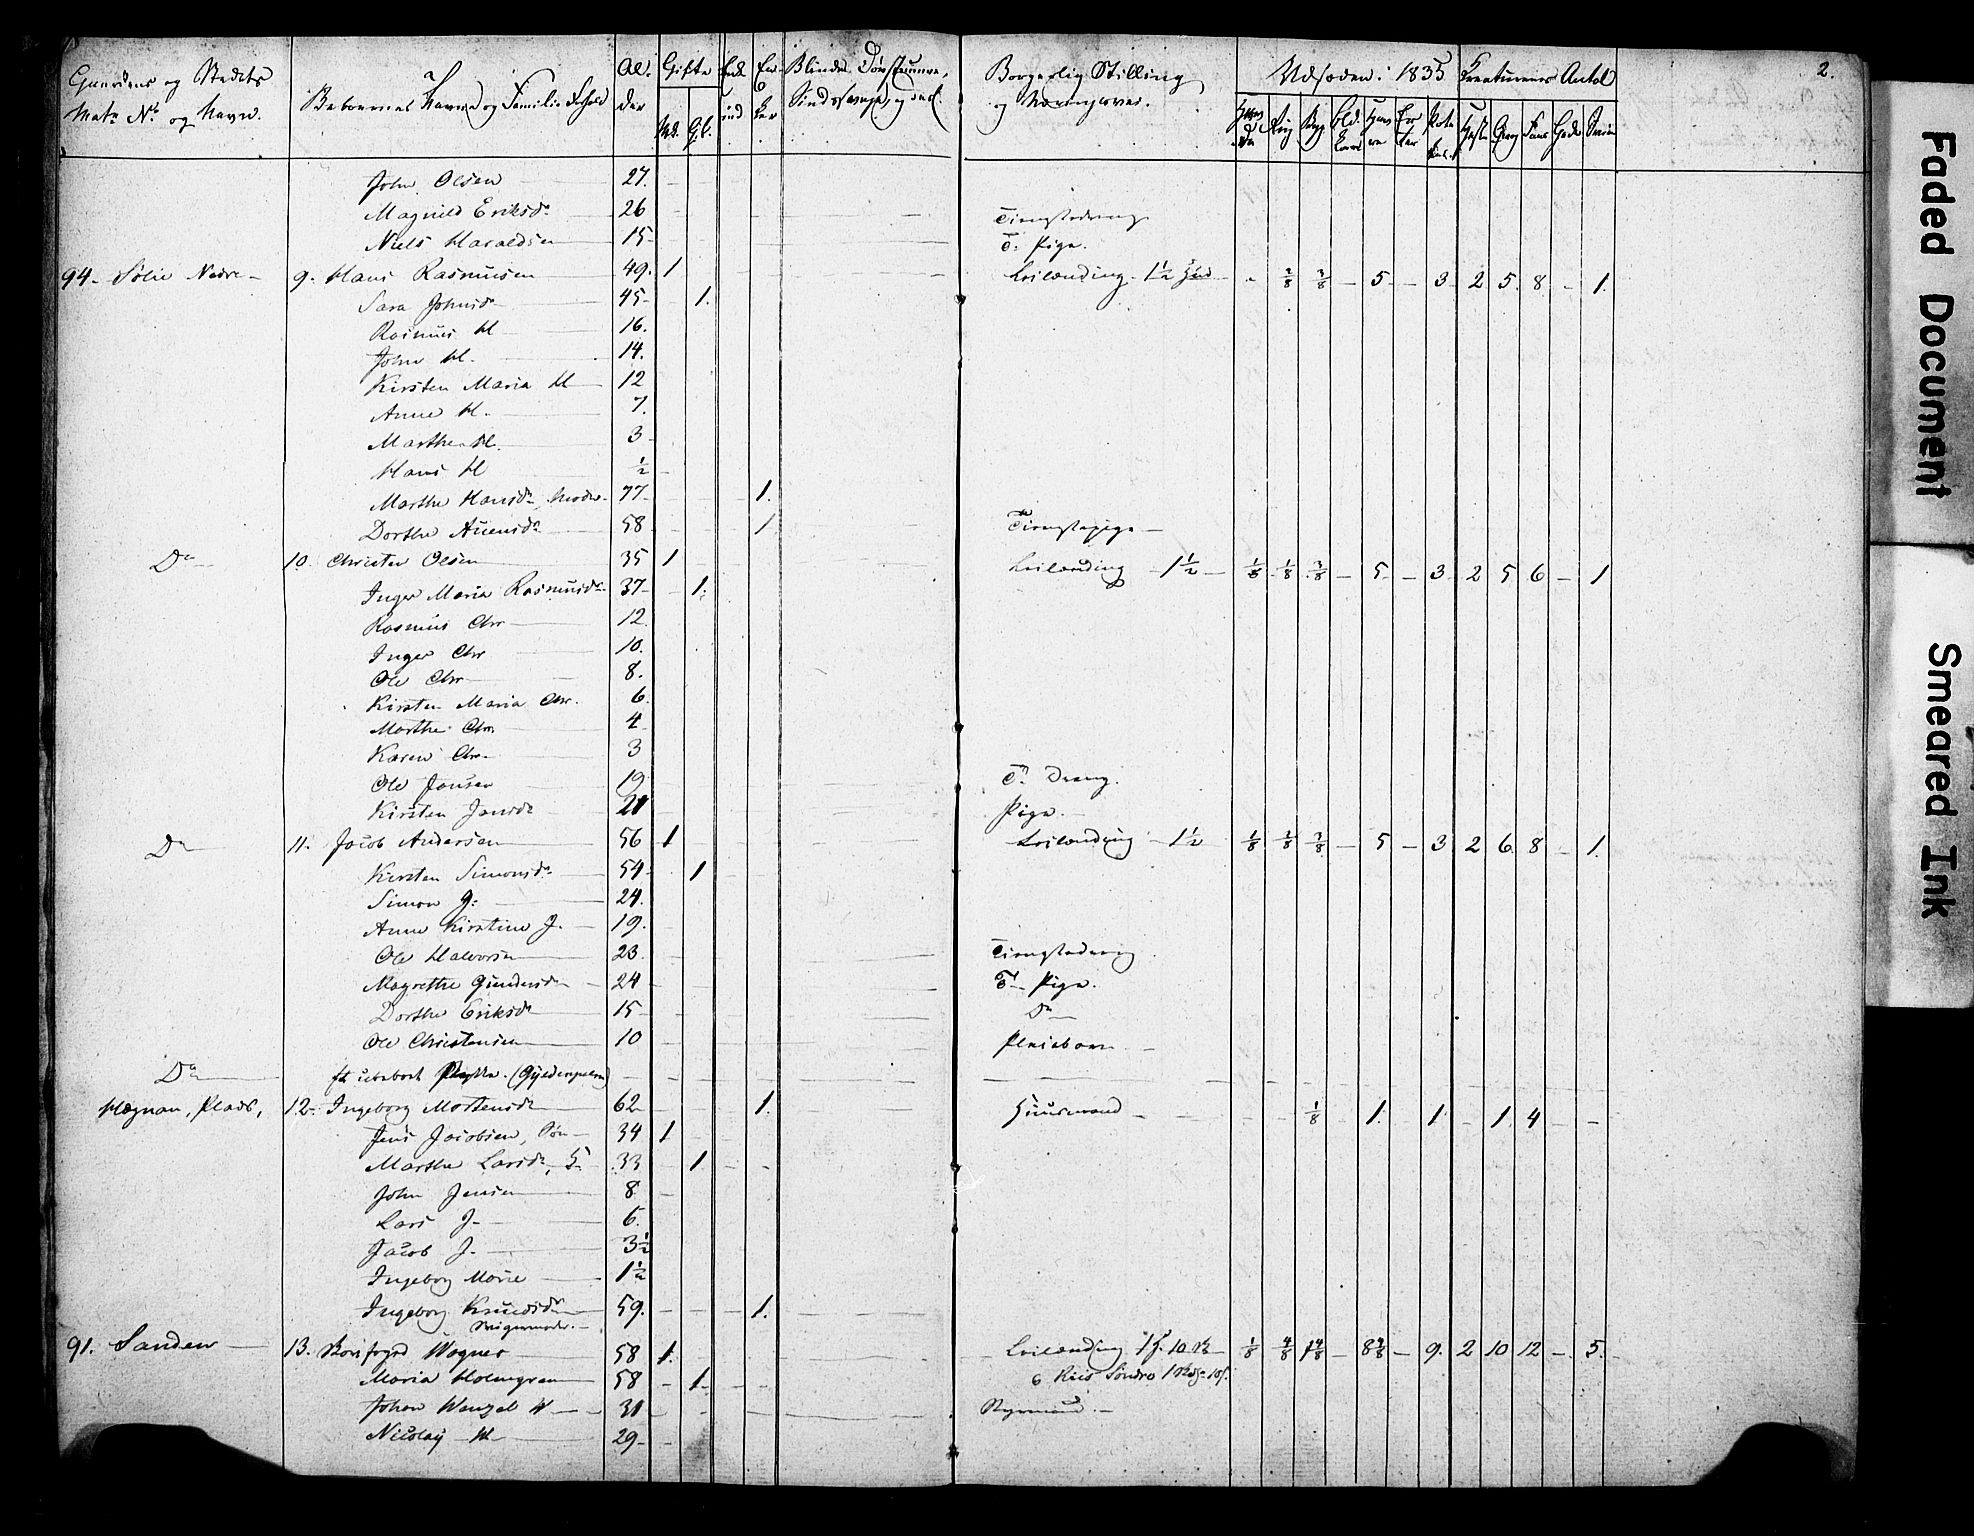 Gaardens og Stedets Matr No og Navn. Beboernes Navne og Familie Forhold Alder Gifte Mk. Qk. Enker Blinde Døvstumme, Sindssvage, og decl. Borgerlig Stilling og Næringsvei. Udsæden i 1835 Creaturenes Antal 2.
Rug Byg Heste Sviin
John Olsen 27.
Magnild Eriksdr 26 Tienstedreng
Niels Haraldsen 15 T. Pige.
94. Solie Nedre 9. Hans Rasmusen 49. 1 Leilænding 1½ Hud 2/8 3/8 5 3 2 5 8 1
Sara Johnsdr 45 1.
Rasmus H 16.
John H. 14.
Kirsten Maria H 12
Anne H. 7.
Marthe H. 3
Hans H ½
Marthe Hansdr, Moder 77 1.
Dorthe Auensdr 58 1 Tienstepige
Do 10. Christen Olsen 35 1 Leilænding 1½ 1/8 1/8 3/8 5 3 2 5 6 1
Inger Maria Rasmusdr 37 1.
Rasmus Chr 12
Inger Chr 10.
Ole Chr 8.
Kirsten Maria Chr. 6
Marthe Chr. 4
Karen Chr. 3
Ole Jansen 19 T. Dreng.
Kirsten Jansdr 21 Pige.
Do 11. Jacob Andersen 56 1 Leilænding 1½ 1/8 2/8 3/8 5 3 2 6. 8 1.
Kirsten Simonsdr 54 1
Simon J. 24.
Anne Kirstine J. 19.
Ole Halvorsen 23 Tienstedreng
Magrethe Gundersdr 24 T. Pige.
Dorthe Eriksdr 15 Do
Ole Christensen 10 Pleiebarn
Do et ubeboet Stykke. (Gyldenpalm)
Hægnan, Plads, 12. Ingeborg Mortensdr 62 1. Huusmand 1/8 1. 1. 1. 4
Jens Jacobsen, Søn 34 1
Marthe Larsdr, H. 33 1
John Jensen 8
Lars J. 6.
Jacob J. 3½
Ingeborg Marie 1½
Ingeborg Knudsdr 59. 1.
Svigermoder.
91. Sanden 13. Borifogd Wagner 58 1. Leilænding 1 H. 10 1/8 4/8 1 4/8 8 4/8 9. 2 10 12 5.
Maria Holmgren 58 1 Riis Søndre
Johan Wenzel W 31 Styrmand.
Nicolay W 29
Faded Document
Smeared Ink